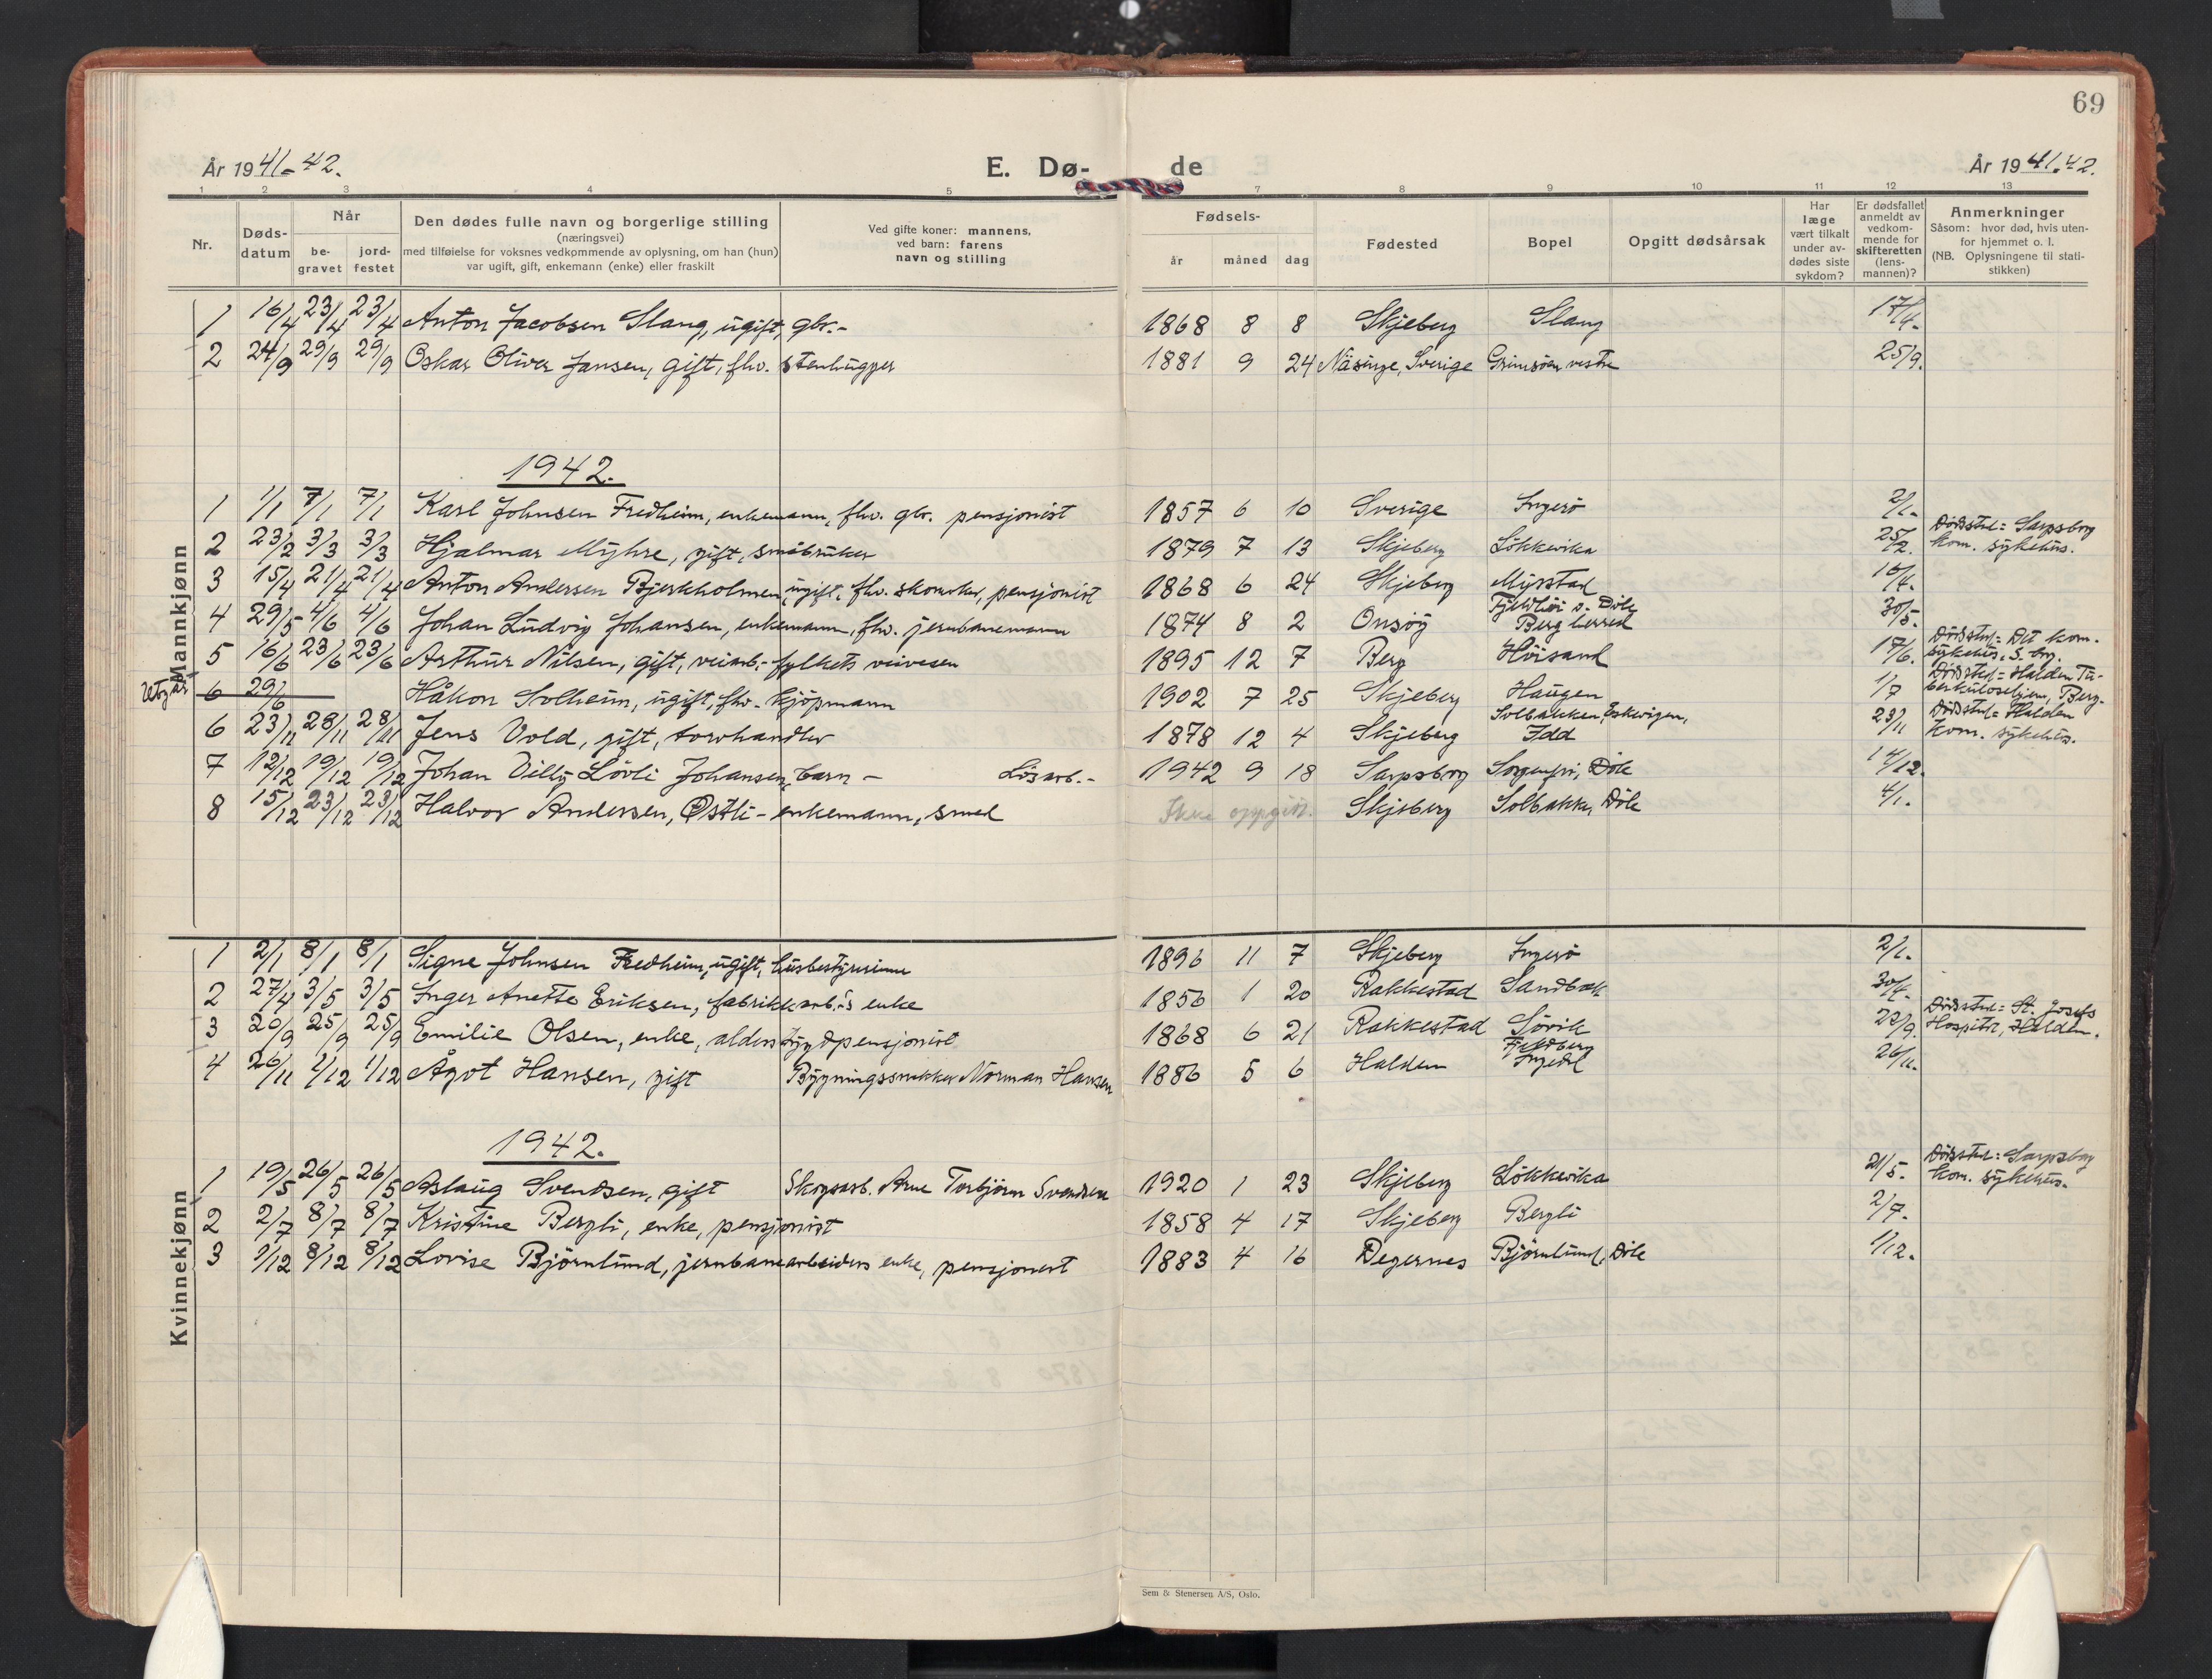 69
År 1941-42.
E. Dø-
de
År 1941.42.
1 2 3 4 5 7 8 9 10 11 12 13
Nr.
Døds-
datum
Når
be-
gravet
jord-
festet
Den dødes fulle navn og borgerlige stilling
(næringsvei)
med tilføielse for voksnes vedkommende av oplysning, om han (hun)
var ugift, gift, enkemann (enke) eller fraskilt
Ved gifte koner: mannens,
ved barn: farens
navn og stilling
Fødsels-
år måned dag
Fødested
Bopel
Opgitt dødsårsak
Har
læge
vært tilkalt
under av-
dødes siste
sykdom?
Er dødsfallet
anmeldt av
vedkom-
mende for
skifteretten
(lens-
mannen)?
Anmerkninger
Såsom: hvor død, hvis uten-
for hjemmet o. l.
(NB. Oplysningene til stati-
stikken)
Mannkjønn
1 16/4 23/4 23/4 Anton Jacobsen Slang, ugift, gbr.- 1868 8 8 Skjeberg Slang 17/4.
2 24/9 29/9 29/9 Oskar Oliver Jansen, gift, fhv. stenhugger 1881 9 24 Näsinge, Sverige Grimsöen vestre 25/9.
1942.
1 1/1 7/1 7/1 Karl Johnsen Fredheim, enkemann, fhv. gbr. pensjonist 1857 6 10 Sverige Ingerö 2/1.
2 23/2 3/3 3/3 Hjalmar Myhre, gift, småbruker 1879 7 13 Skjeberg Lökkevika 25/2. Dödssted = Sarpsborg
kom. sykehus.
3 15/4 21/4 21/4 Anton Andersen Bjerkholmen, ugift, fhv. skomaker, pensjonist 1868 6 24 Skjeberg Myrstad 16/4.
4 29/5 4/6 4/6 Johan Ludvig Johansen, enkemann, fhv. jernbanemann 1874 8 2 Onsöy Döle
Berg herred 30/5.
5 16/6 23/6 23/6 Arthur Nilsen, gift, veiarb.- fylkets veivesen 1895 12 7 Berg Höisand 17/6. Dödssted = Det kom.
sykehus, S.borg.
6 29/6 Håkon Solheim, ugift, fhv. kjöpmann 1902 7 25 Skjeberg Haugen 1/7 Dödssted = Halden Tu-
berkulosehjem, Berg.
6 23/11 28/11 28/11 Jens Vold, gift, torvhandler 1878 12 4 Skjeberg Solbakken, Eskevigen,
Idd 23/11 Dödssted = Halden
kom. sykehus.
7 12/12 19/12 19/12 Johan Villy Lövli Johansen, barn - Lösarb.- 1942 9 18 Sarpsborg Sorgenfri, Döle 14/12.
8 15/12 23/12 23/12 Halvor Andersen, Östli - enkemann, smed Ikke oppgitt. Skjeberg Solbakken, Döle 4/1.
Kvinnekjønn
1 2/1 8/1 8/1 Signe Johnsen Fredheim, ugift, husbestyrerinne 1896 11 7 Skjeberg Ingerö 2/1.
2 27/4 3/5 3/5 Inger Anette Eriksen, fabrikkarb.s enke 1856 1 20 Rakkestad Sandbæk 30/4.
3 20/9 25/9 25/9 Emilie Olsen, enke, alderstrygdpensjonist 1868 6 21 Rakkestad Sörvik 22/9. Dödssted = St. Josefs
Hospital, Halden.
4 26/11 1/12 1/12 Ågot Hansen, gift Bygningssnekker Norman Hansen 1886 5 6 Halden Fjeldberg
Ingedal 26/11.
1942.
1 19/5 26/5 26/5 Aslaug Svendsen, gift Skogsarb. Arne Torbjörn Svendsen 1920 1 23 Skjeberg Lökkevika 21/5. Dödssted: Sarpsborg
kom. sykehus.
2 2/7 8/7 8/7 Kristine Bergli, enke, pensjonist 1858 4 17 Skjeberg Bergli 2/7.
3 1/12 8/12 8/12 Lovise Björnlund, jernbanearbeiders enke, pensjonert 1883 4 16 Degernes Björnlund, Döle 1/12.
Sem & Stenersen A/S, Oslo.